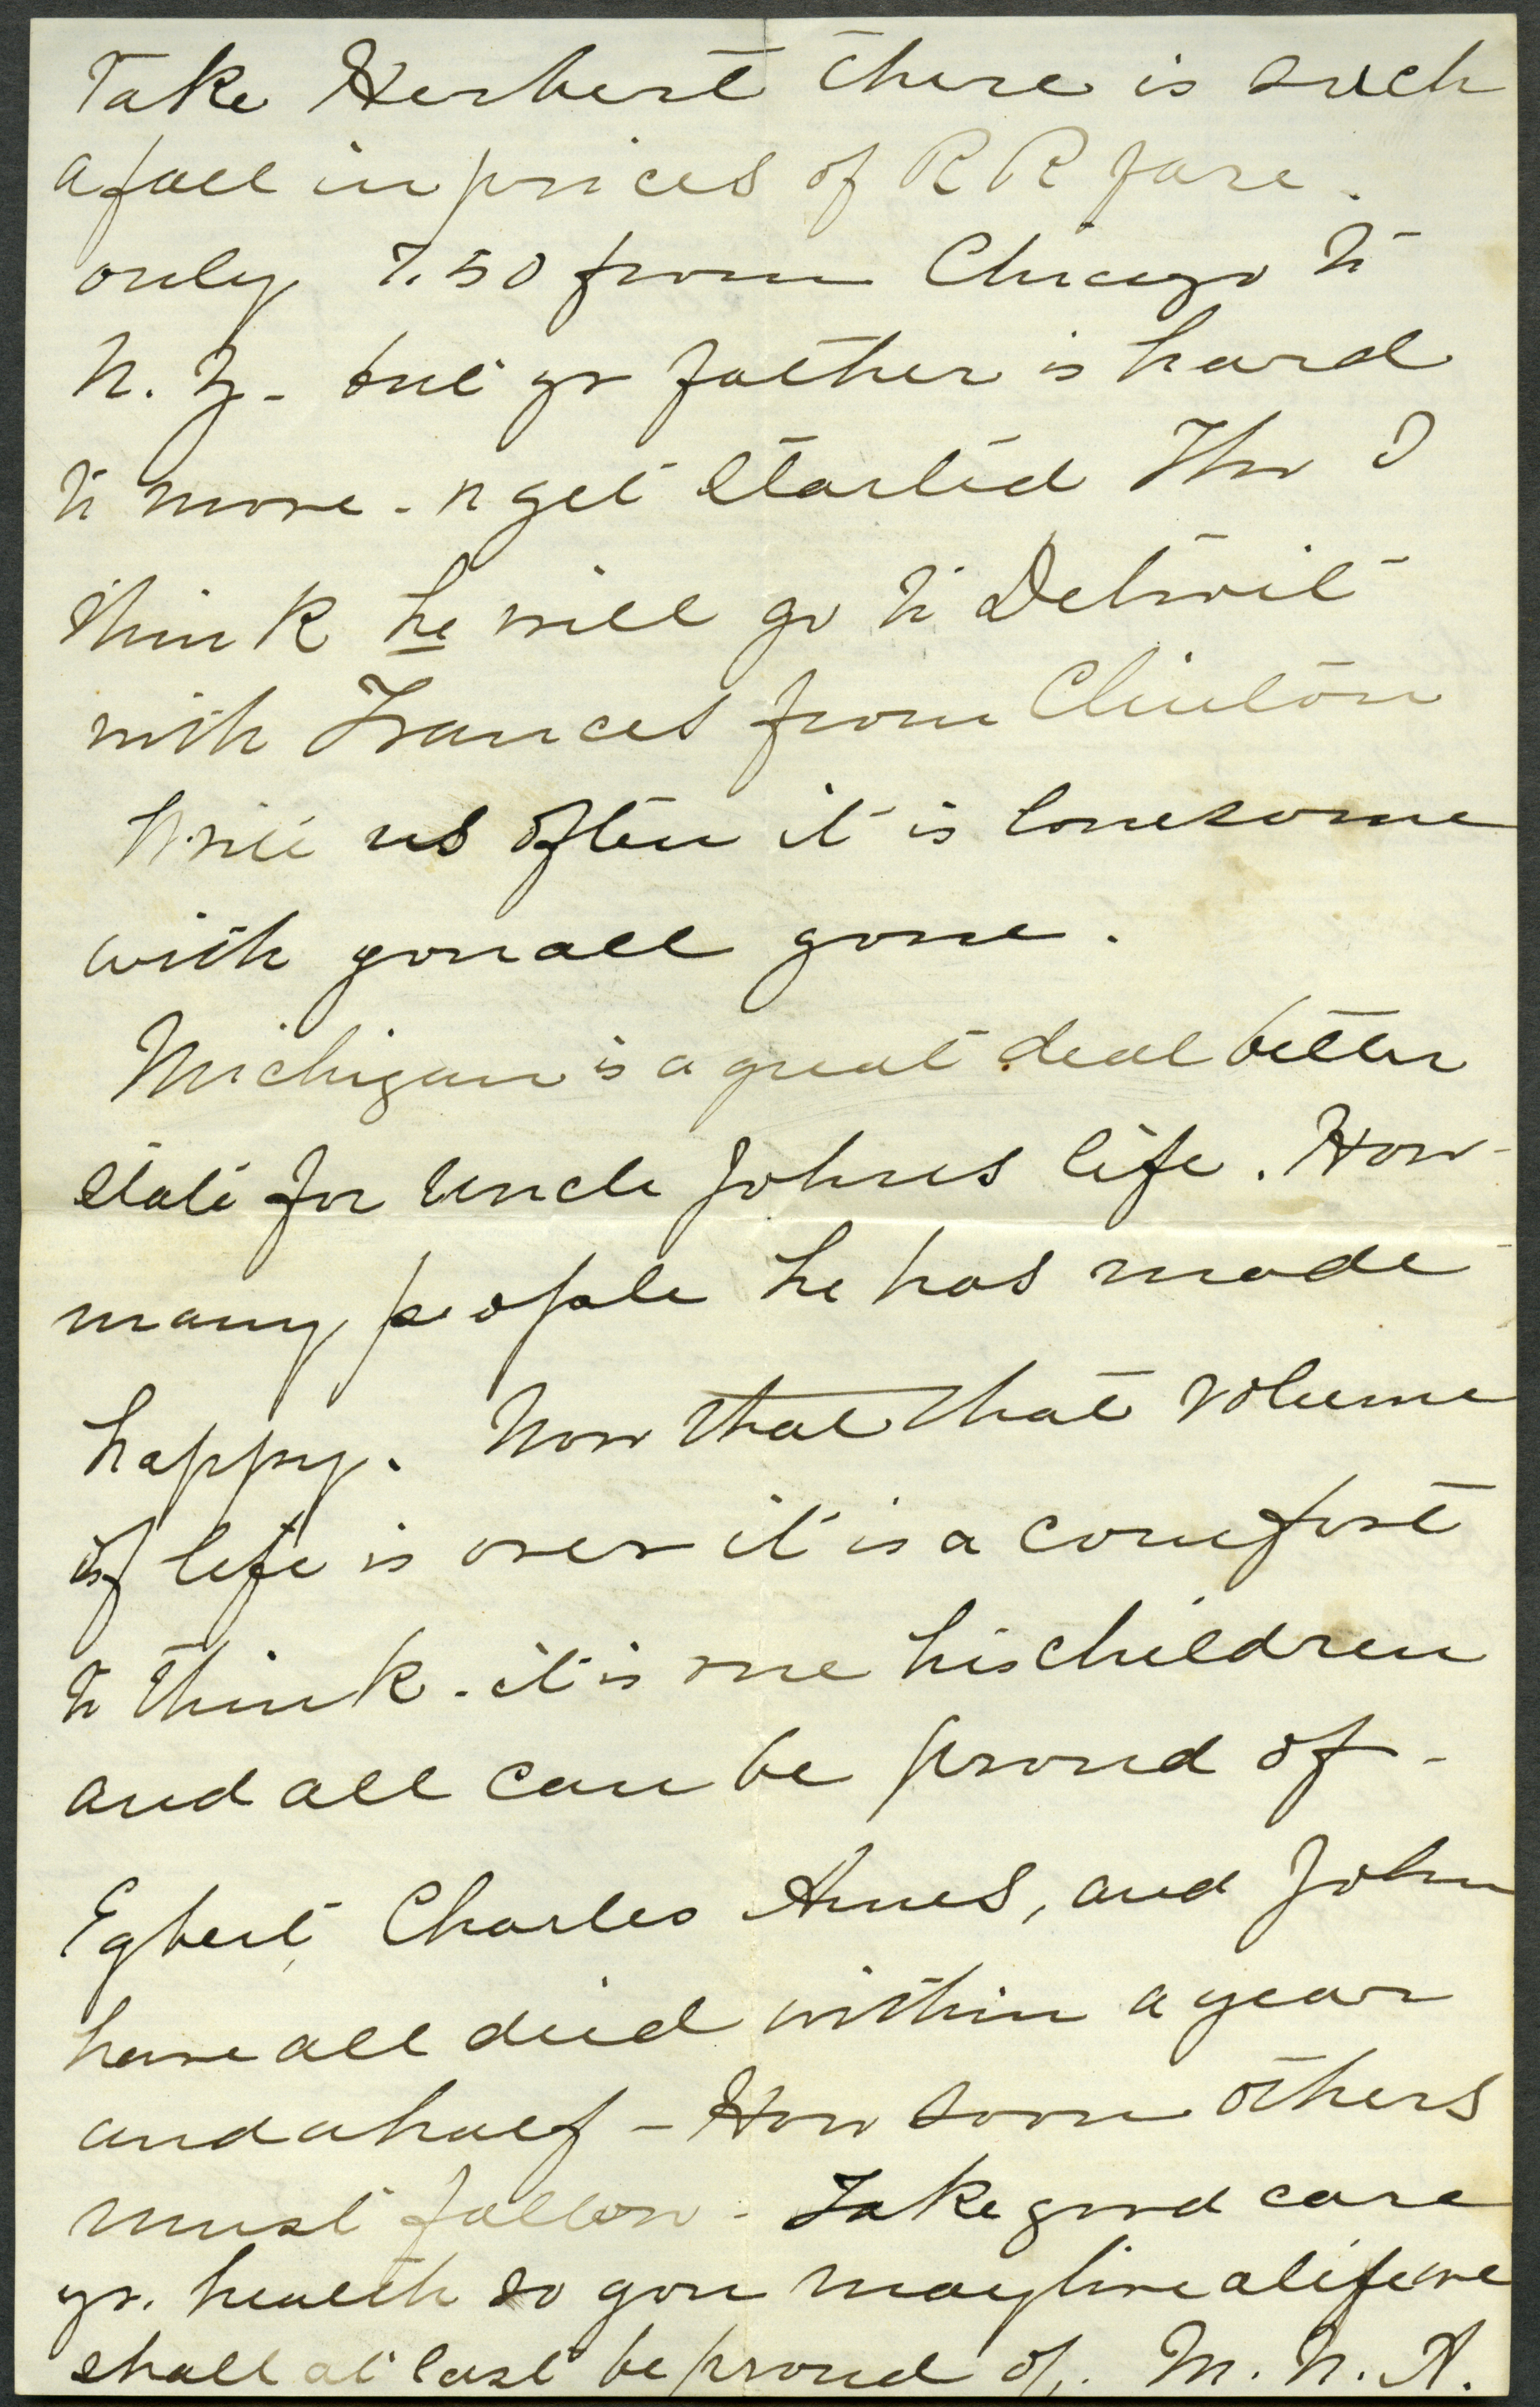 Take Herbert there is such
a fall in prices of R R fare.
only 7.50 from Chicago to
N. Y. - but yr father is hard
to move - n get started Tho I
think he will go to Detroit
with Frances from Clinton
Write us often it is lonesome
with you all gone.
Michigan is a great deal better
state for Uncle Johns life. How
many people he has made
happy. Now that that volume
of life is over it is a comfort
to think - it is one his children
and all can be proud of -
Egbert, Charles Ames, and John
have all died within a year
and a half - How soon others
must follow - Take good care
yr. health so you may live a life we
shall at last be proud of. M. N. A.